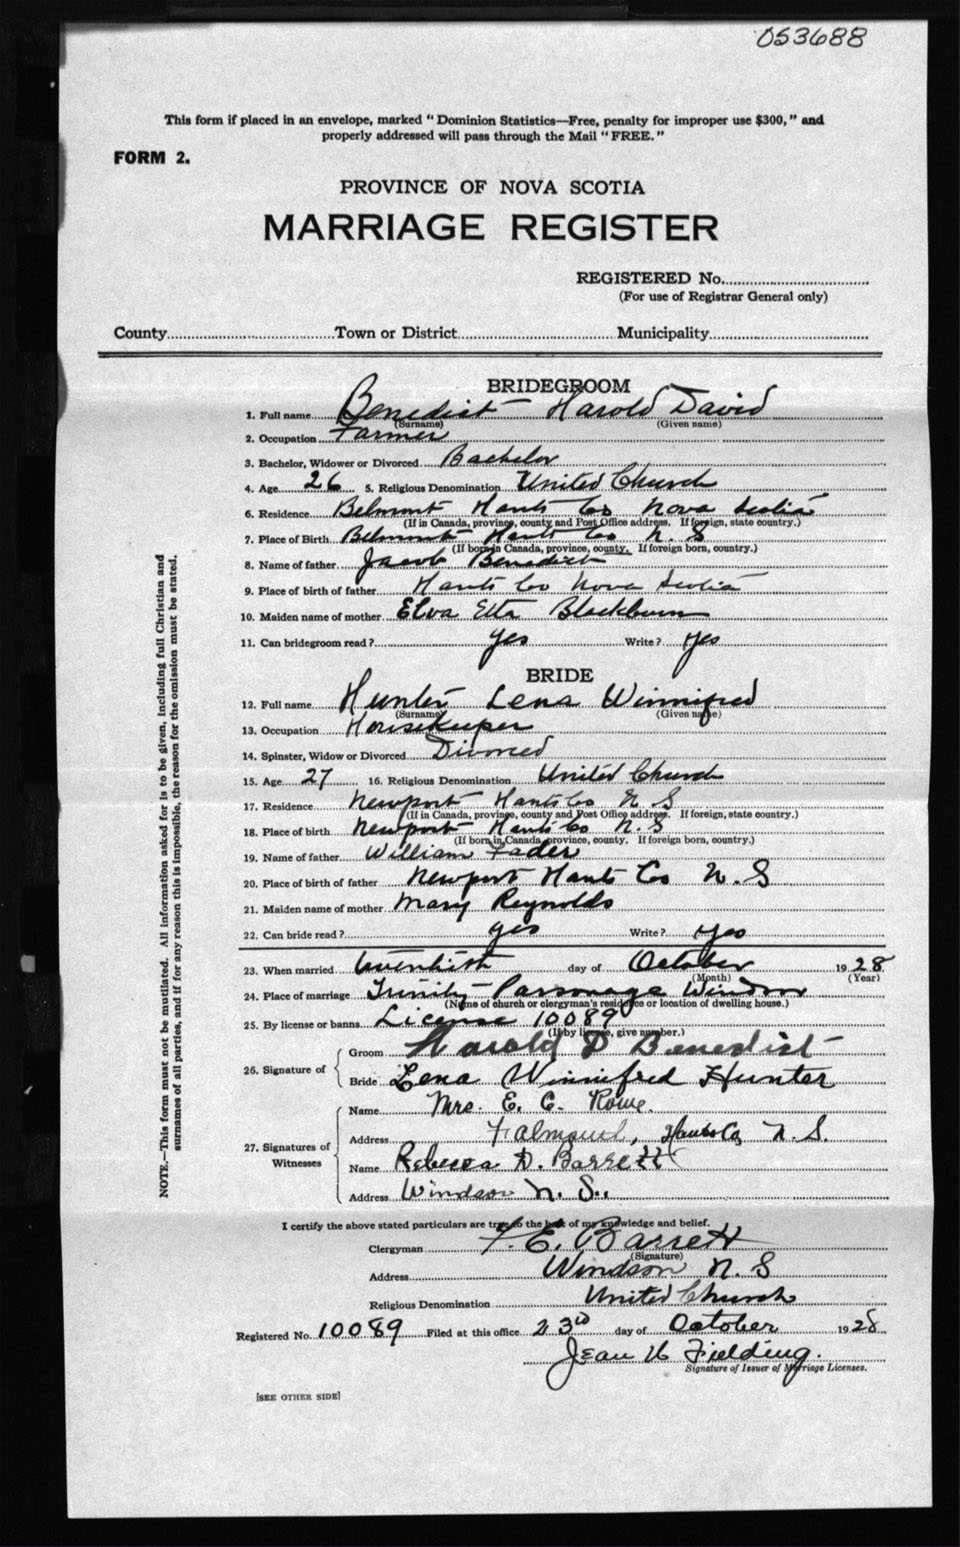 053688
This form if placed in an envelope, marked " Dominion Statistics—Free, penalty for improper use $300, " and
properly addressed will pass through the Mail " FREE. "
FORM 2.
PROVINCE OF NOVA SCOTIA
MARRIAGE REGISTER
REGISTERED No.
(For use of Registrar General only)
County Town or District Municipality
BRIDEGROOM
1. Full name Benedict Harold David
(Surname) (Given name)
2. Occupation Farmer
3. Bachelor, Widower or Divorced Bachelor
4. Age 26 5. Religious Denomination United Church
6. Residence Belmont Hants Co Nova Scotia
(If in Canada, province, county and Post Office address. If foreign, state country.)
7. Place of Birth Belmont Hants Co N. S
(If born in Canada, province, county. If foreign born, country.)
8. Name of father Jacob Benedict
9. Place of birth of father Hants Co Nova Scotia
10. Maiden name of mother Elva Etta Blackburn
11. Can bridegroom read? yes Write? yes
BRIDE
12. Full name Hunter Lena Winnifred
(Surname) (Given name)
13. Occupation Housekeeper
14. Spinster, Widow or Divorced Divorced
15. Age 27 16. Religious Denomination United Church
17. Residence Newport Hants Co N. S
(If in Canada, province, county and Post Office address. If foreign, state country.)
18. Place of birth Newport Hants Co N. S
(If born in Canada, province, county. If foreign born, country.)
19. Name of father William Fader
20. Place of birth of father Newport Hants Co N. S
21. Maiden name of mother Mary Reynolds
22. Can bride read? yes Write? yes
23. When married day of October 1928
(Month) (Year)
24. Place of marriage Trinity Parsonage Windsor
(Name of church or clergyman's residence or location of dwelling house.)
25. By license or banns License 10089
(If by license, give number.)
26. Signature of
Groom Harold D Benedict
Bride Lena Winnifred Hunter
27. Signatures of Witnesses
Name Mrs. E. C. Rowe.
Address Falmouth, Hants Co, N. S.
Name Rebecca D. Barrett
Address Windsor N. S.
I certify the above stated particulars are true to the best of my knowledge and belief.
Clergyman E. Barrett
(Signature)
Address Windsor N. S
Religious Denomination United Church
Registered No. 10089 Filed at this office 23rd day of October 1928
Jean Fielding.
Signature of Issuer of Marriage Licenses.
[SEE OTHER SIDE]
NOTE.—This form must not be mutilated. All information asked for is to be given, including full Christian and
surnames of all parties, and if for any reason this is impossible, the reason for the omission must be stated.